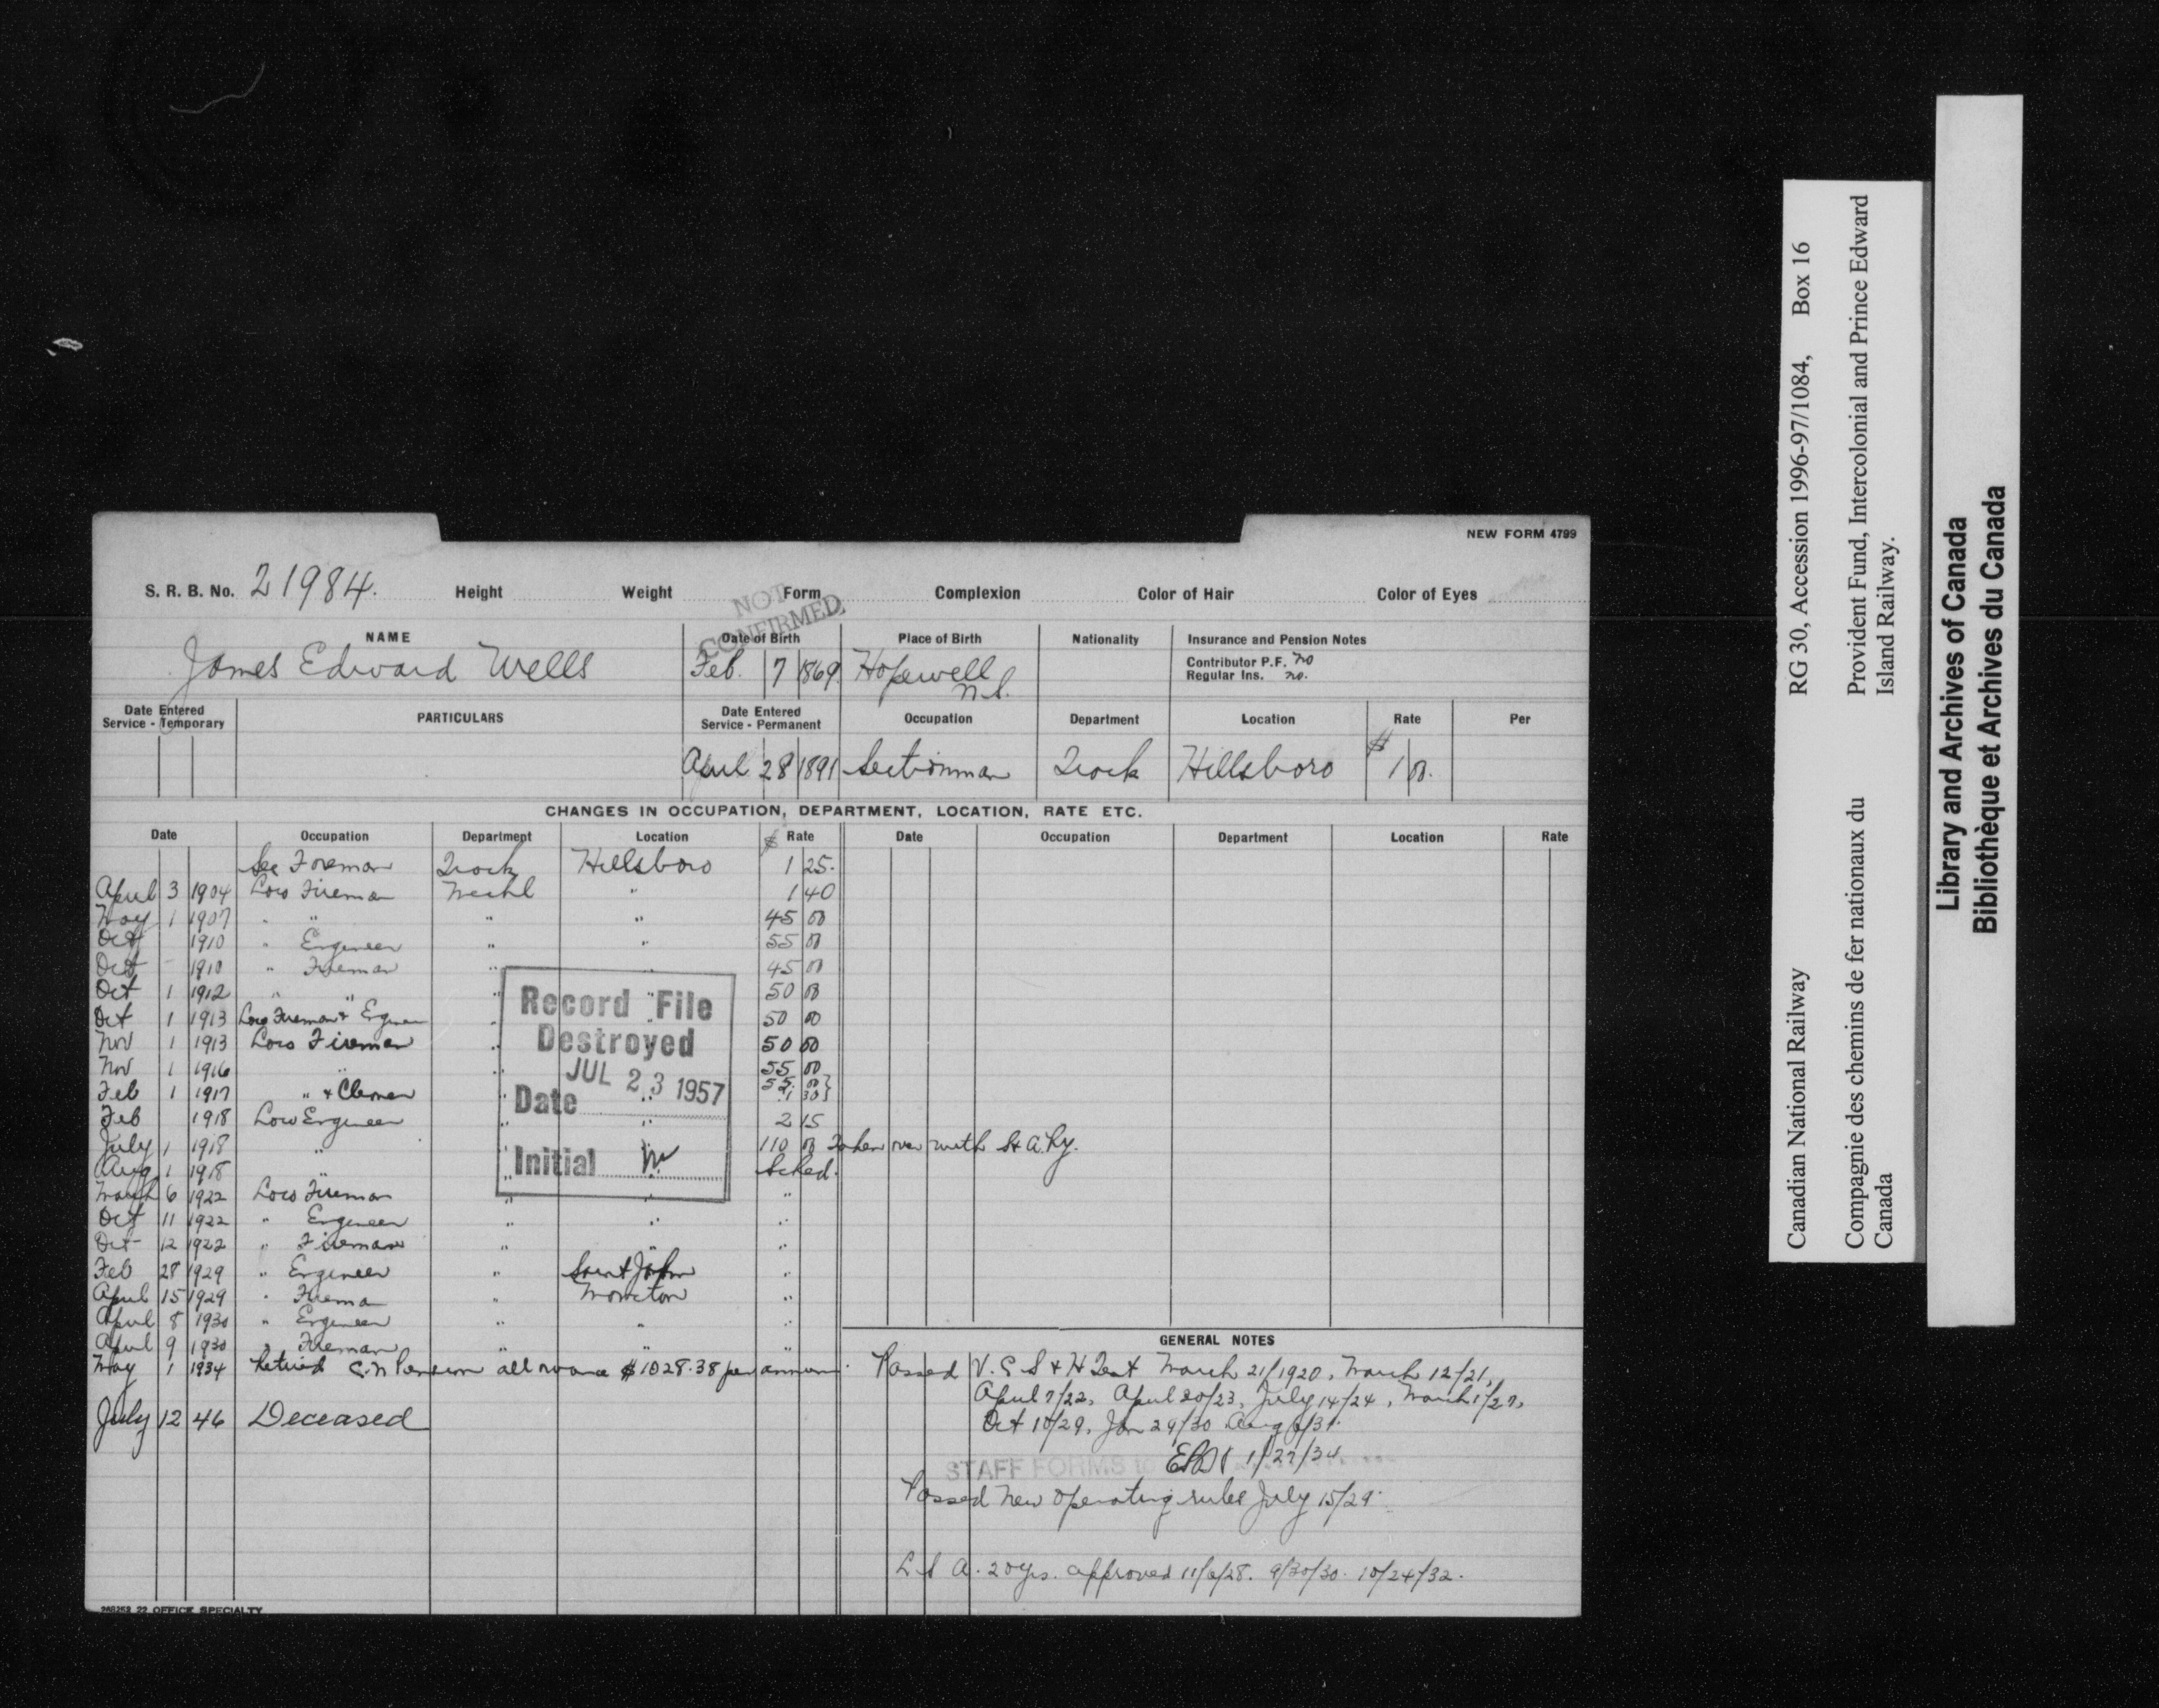 NEW FORM 4799
S. R. B. No. 21984. Height Weight Form Complexion Color of Hair Color of Eyes
NOT CONFIRMED
NAME Date of Birth Place of Birth Nationality Insurance and Pension Notes
James Edward Wells Feb. 7 1869 Hopewell Contributor P.F. no
Regular Ins. no.
Date Entered Service - Temporary PARTICULARS Date Entered Service - Permanent Occupation Department Location Rate Per
April 28 1891 Sectionman Track Hillsboro $ 1 00.
CHANGES IN OCCUPATION, DEPARTMENT, LOCATION, RATE ETC.
Date Occupation Department Location $ Rate Date Occupation Department Location Rate
Sec Foreman Track Hillsboro 1 25.
April 3 1904 Loco Fireman Mechl " 1 40
May 1 1907 " " " " 45 00
Oct 1910 " Engineer " " 55 00
Oct - 1910 " Fireman " " 45 00
Oct 1 1912 " " " " 50 00
Oct 1 1913 Loco Fireman & Engineer " 50 00
Nov 1 1913 Loco Fireman " " 50 00
Nov 1 1916 " " 55 00
Feb 1 1917 " & Cleaner " " 55 00 } 1 30 }
Feb 1918 Loco Engineer " 2 15
July 1 1918 " " " 110 00 Taken over with S & A. Ry.
Aug 1 1918 " " Sched.
March 6 1922 Loco Fireman " " "
Oct 11 1922 " Engineer " " "
Oct 12 1922 " Fireman " " "
Feb 28 1929 " Engineer " Saint John "
April 15 1929 " Fireman " Moncton "
April 8 1930 " Engineer " " "
April 9 1930 " Fireman " " "
May 1 1934 Retired C.N Pension allowance $1028.38 per annum.
July 12 46 Deceased
Record File
Destroyed
JUL 23 1957
Date
Initial
GENERAL NOTES
Passed V. C S & H Test March 21/1920, March 12/21,
April 7/22, April 20/23, July 14/24, March 1/27,
Oct 10/29, Jan 29/30 Aug 6/31.
1/27/34
STAFF FORMS
Passed new operating rules July 15/29.
L S A. 20 yrs. approved 11/6/28. 9/30/30. 10/24/32.
OFFICE SPECIALTY
Canadian National Railway RG 30, Accession 1996-97/1084, Box 16
Compagnie des chemins de fer nationaux du Canada Provident Fund, Intercolonial and Prince Edward Island Railway.
Library and Archives of Canada
Bibliothèque et Archives du Canada